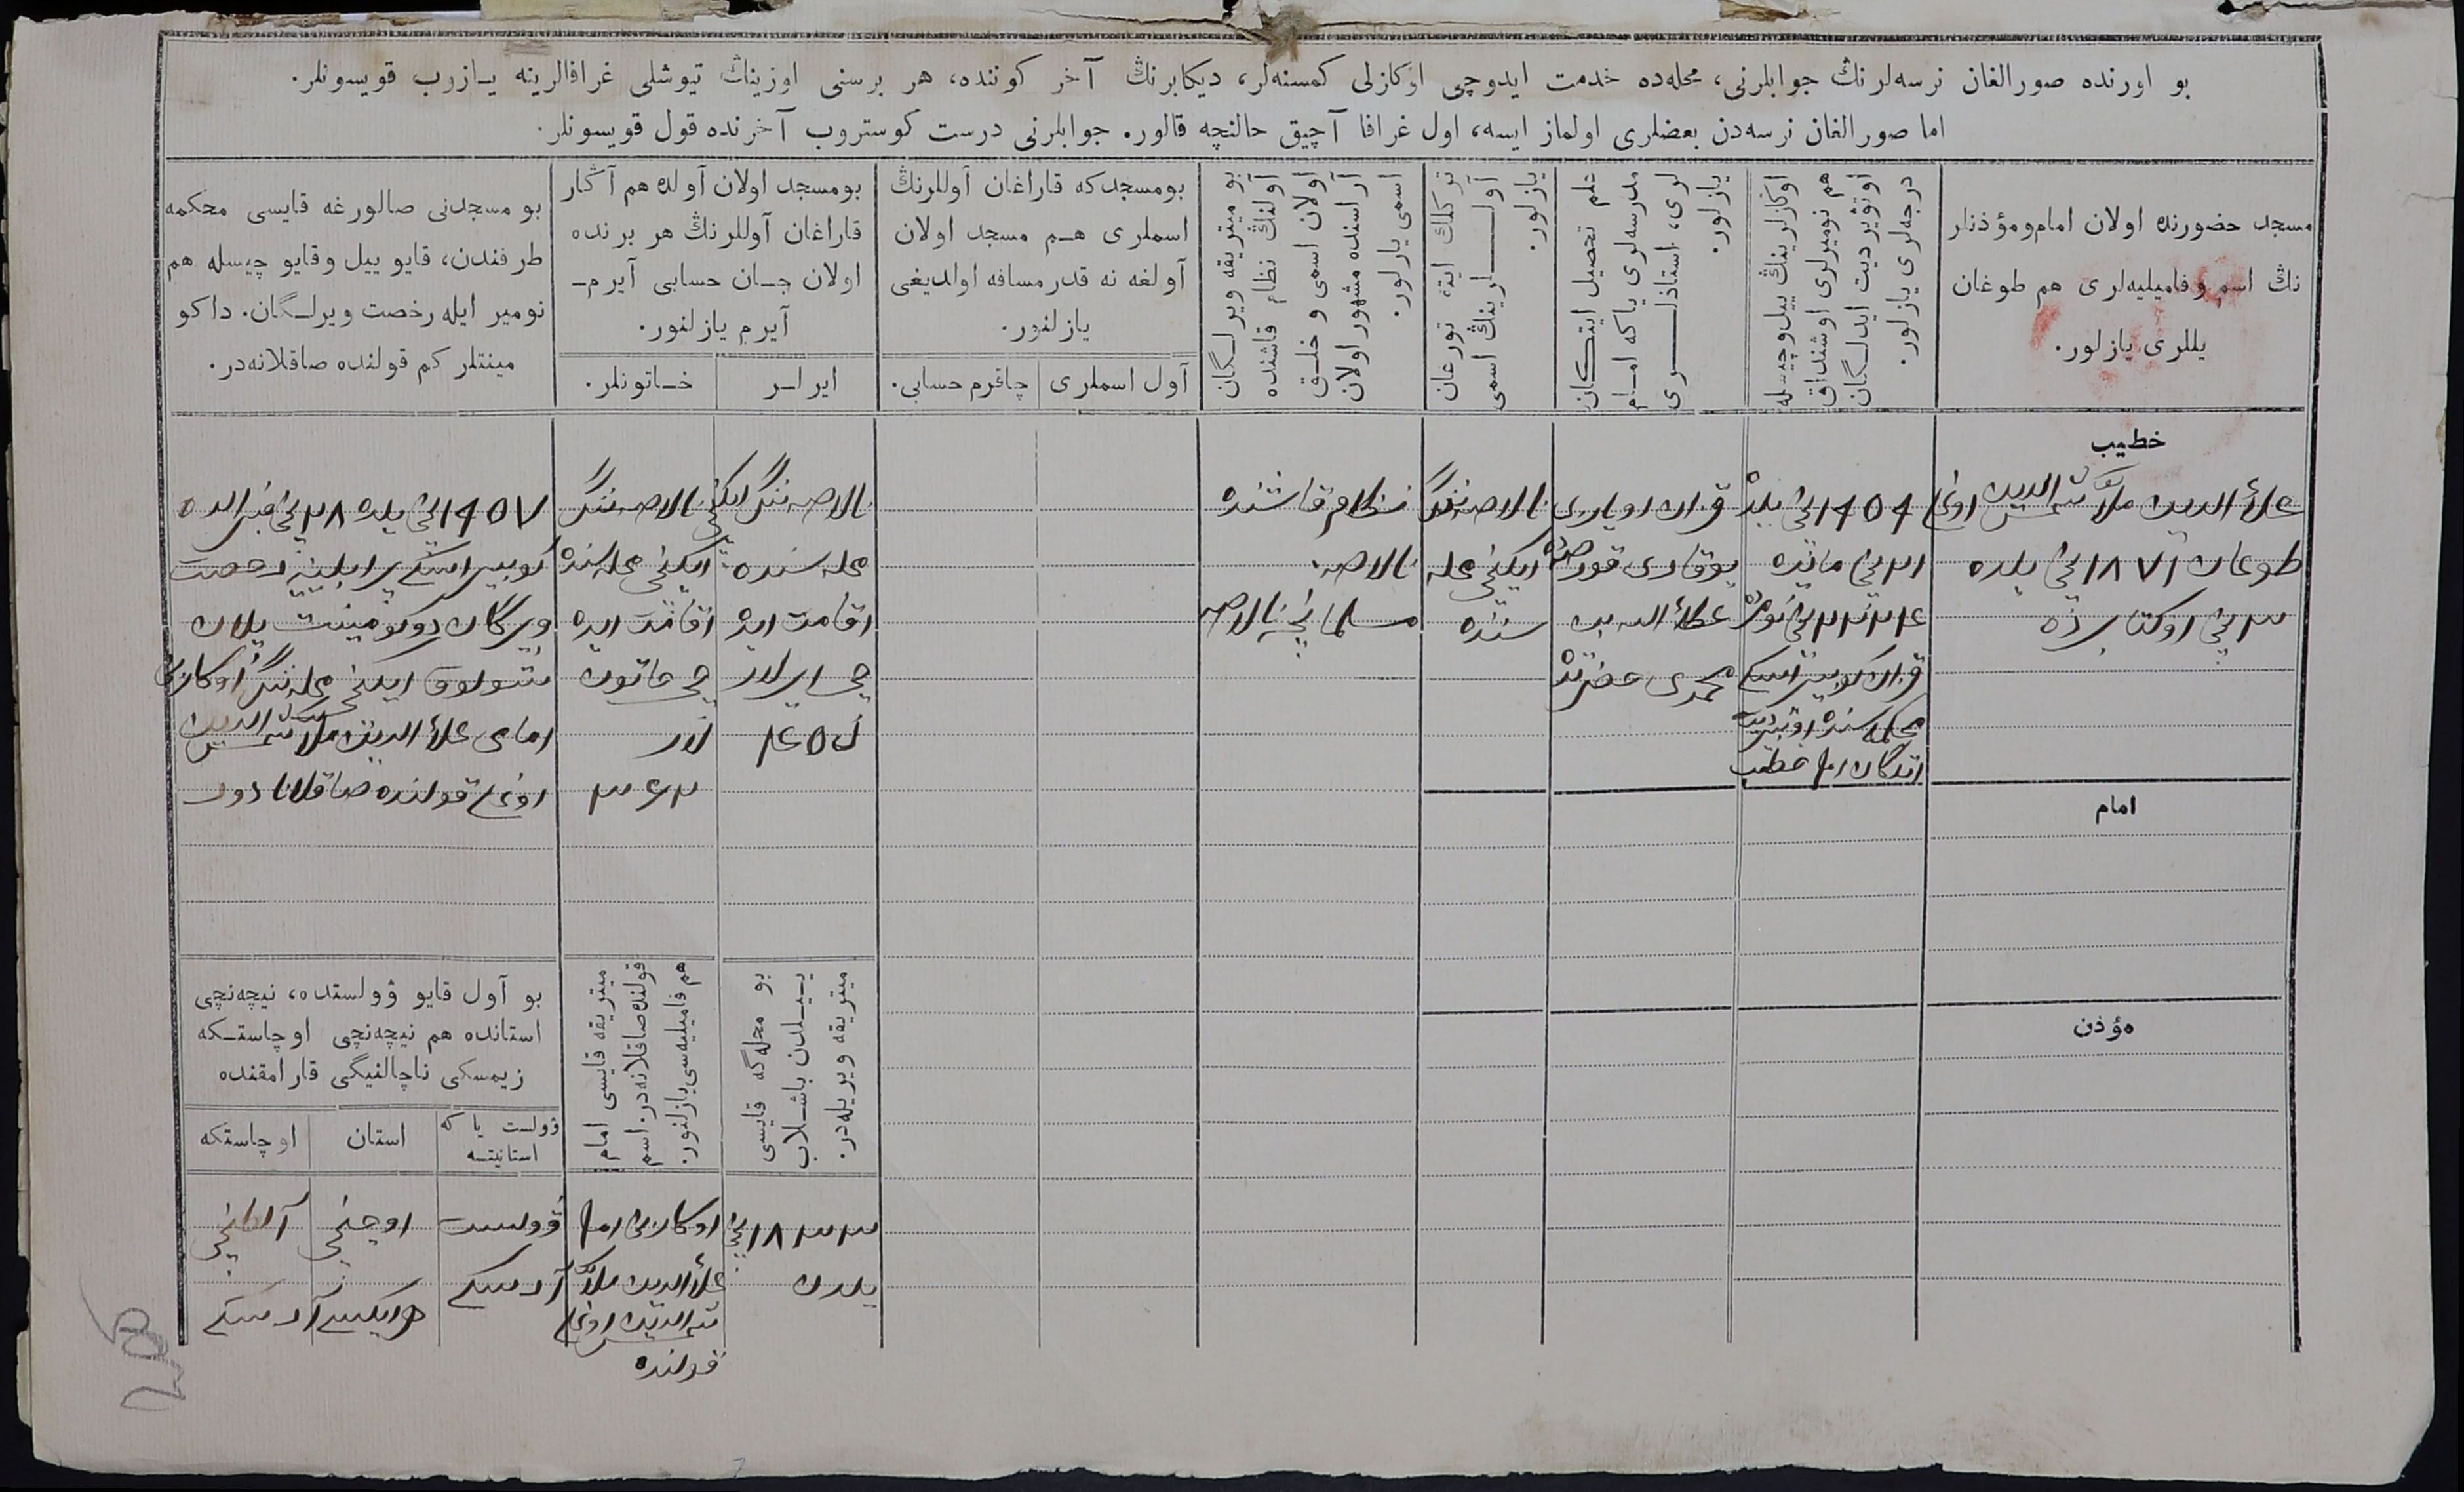 بو اورنده صورالغان نرسه‌لرنڭ جوابلرنی، محله‌ده خدمت ایدوچی اوکازلی کمسنه‌لر، دیکابرنڭ آخر کوننده، هر برسنی اوزینڭ تیوشلی غرافالرینه یازوب قویسونلر.
اما صورالغان نرسه‌دن بعضلری اولماز ایسه، اول غرافا آچیق حالنچه قالور. جوابلرنی درست کوستروب آخرنده قول قویسونلر.
مسجد حضورنده اولان امام ومؤذنلر
نڭ اسم وفامیلیه‌لری هم طوغان
یللری یازلور.
اوکازلرینڭ ییل وچیسله
هم نومیرلری اوشنداق
اوتویردیت ایدلگان
درجه‌لری یازلور.
علم تحصیل ایتکان
مدرسه‌لری یاکه امام
لری، استاذلری
یازلور.
ترکلك ایته تورغان
آوللرینڭ اسمی
یازلور.
بو میتریقه ویرلگان
آولنڭ نظام قاشنده
اولان اسمی و خلق
آراسنده مشهور اولان
اسمی یازلور.
بومسجدکه قاراغان آوللرنڭ
اسملری هم مسجد اولان
آولغه نه قدر مسافه اولدیغی
یازلنور.
آول اسملری
چاقرم حسابی.
بومسجد اولان آولده هم آڭار
قاراغان آوللرنڭ هر برنده
اولان جان حسابی آیرم-
آیرم یازلنور.
ایرلر
خاتونلر.
بو مسجدنی صالورغه قایسی محکمه
طرفندن، قایو ییل وقایو چیسله هم
نومیر ایله رخصت ویرلگان. داکو
مینتلر کم قولنده صاقلانه‌در.
خطیب
علاء الدین ملا شمس الدین اوغلی
طوغان ١٨٧١ نچی یلده
٣ نچی اوکتابرده
٢١ نچی مایده
قزان کوبیرنسکی
محکمه‌سنده
امام خطیب
قزان اویازی
یوقاری قورصه
عطاء الله بن
محمدی حضرتده
بالاصه‌ننگ
ایکنچی محله
سنده
نظام قاشنده
بالاصه.
مسلمانچه بالاصه
بالاصه‌ننگ ایکنچی
محله‌سنده
اقامت ایده
چی ایرلار
بالاصه‌ننگ
ایکنچی محله‌سنده
اقامت ایده
چی خاتون
لار
٣٤٢
١٩٠٧ نچی یلده ٢٨ نچی فیرالده
کوبیرنسکی پراپلینیه رخصت
ویرگان دوکومینت پلان
ایکنچی محله‌ننگ اوکازلی
امامی علاء الدین ملا شمس الدین
اوغلی قولنده صاقلانادور
امام
مؤذن
بو محله‌گه قایسی
ییلدن باشلاب
میتریقه ویریله‌در.
میتریقه قایسی امام
قولنده صاقلانه‌در. اسم
هم فامیلیه‌سی یازلنور.
بو آول قایو وولستده، نیچه‌نچی
استانده هم نیچه‌نچی اوچاستکه
زیمسکی ناچالنیگی قارامقنده
وولست یا که
استانیتسه
استان
اوچاستکه
١٨٣٣ نچی
یلدن
اوکازلی امام
علاء الدین ملا
شمس الدین اوغلی
قولنده
وولست
آرسکی
اوچنچی
آلتنچی
آرسکی
206